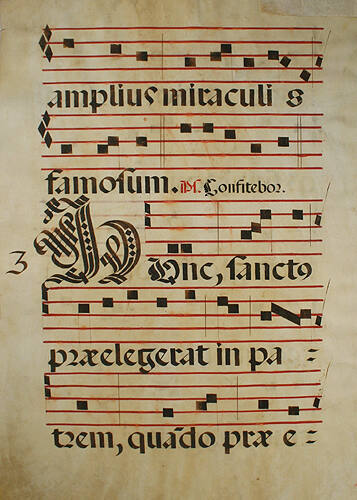 amplius miraculi s
famoſum. Ps. Confitebor.
3 HUnc, ſanctꝰ
præelegerat in pa =
trem, quādo præ e =